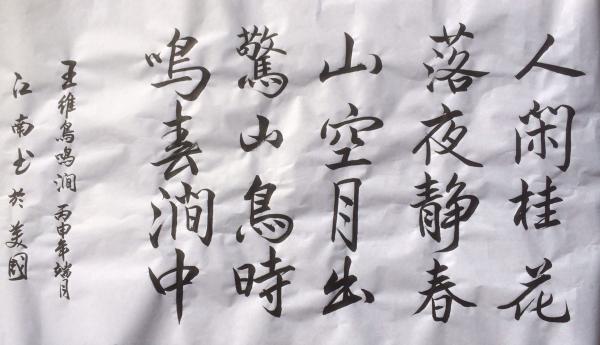 人閑桂花
落夜静春
山空月出
驚山鳥時
鳴春澗中
王維鳥鳴澗 丙申年端月
江南书於美國